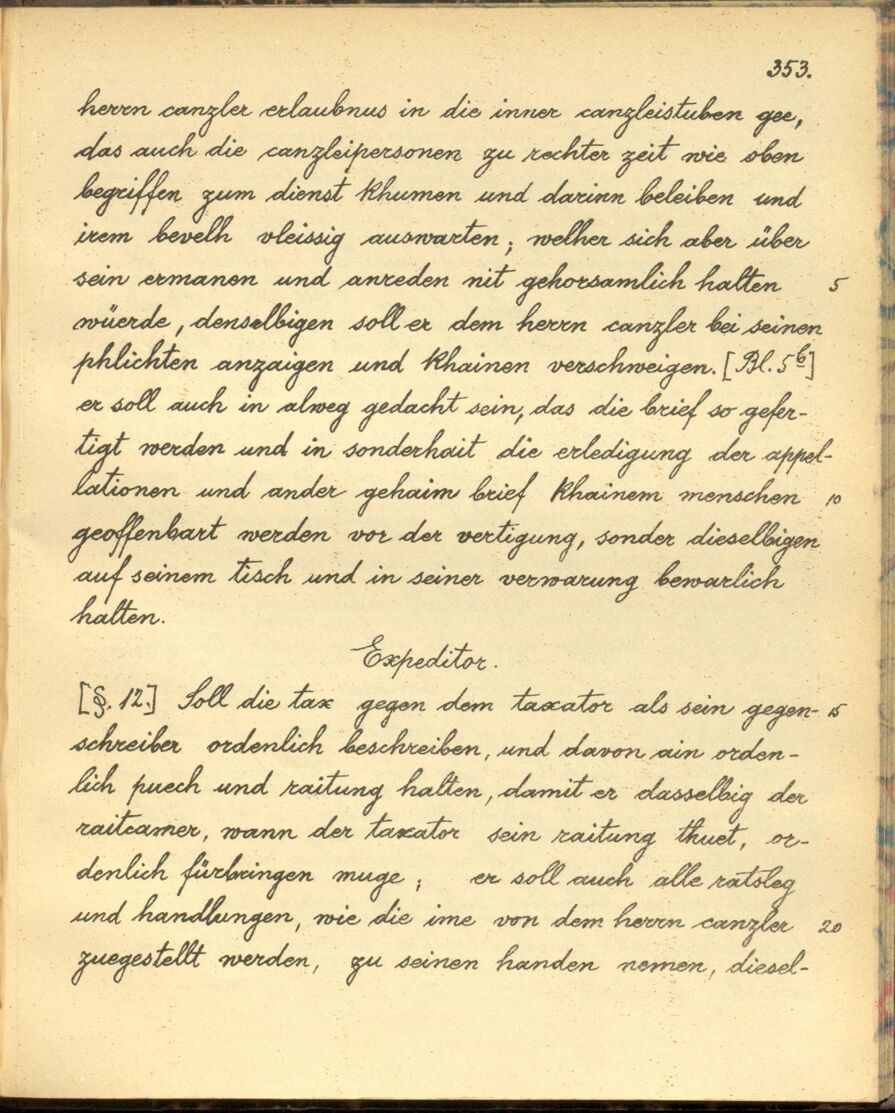 353.
herrn canzler erlaubnus in die inner canzleistuben gee,
das auch die canzleipersonen zu rechter zeit wie oben
begriffen zum dienst khumen und darinn beleiben und
irem bevelh vleissig auswarten; welher sich aber über
sein ermanen und anreden nit gehorsamlich halten 5
wüerde, denselbigen soll er dem herrn canzler bei seinen
phlichten anzaigen und khainen verschweigen. [Bl. 5b]
er soll auch in alweg gedacht sein, das die brief so gefer-
tigt werden und in sonderhait die erledigung der appel-
lationen und ander gehaim brief khainem menschen 10
geoffenbart werden vor der vertigung, sonder dieselbigen
auf seinem tisch und in seiner verwarung bewarlich
halten.
Expeditor.
[§. 12.] Soll die tax gegen dem taxator als sein gegen- 15
schreiber ordenlich beschreiben, und davon ain orden-
lich puech und raitung halten, damit er dasselbig der
raitcamer, wann der taxator sein raitung thuet, or-
denlich fürbringen muge; er soll auch alle ratsleg
und handlungen, wie die ime von dem herrn canzler 20
zuegestellt werden, zu seinen handen nemen, diesel-